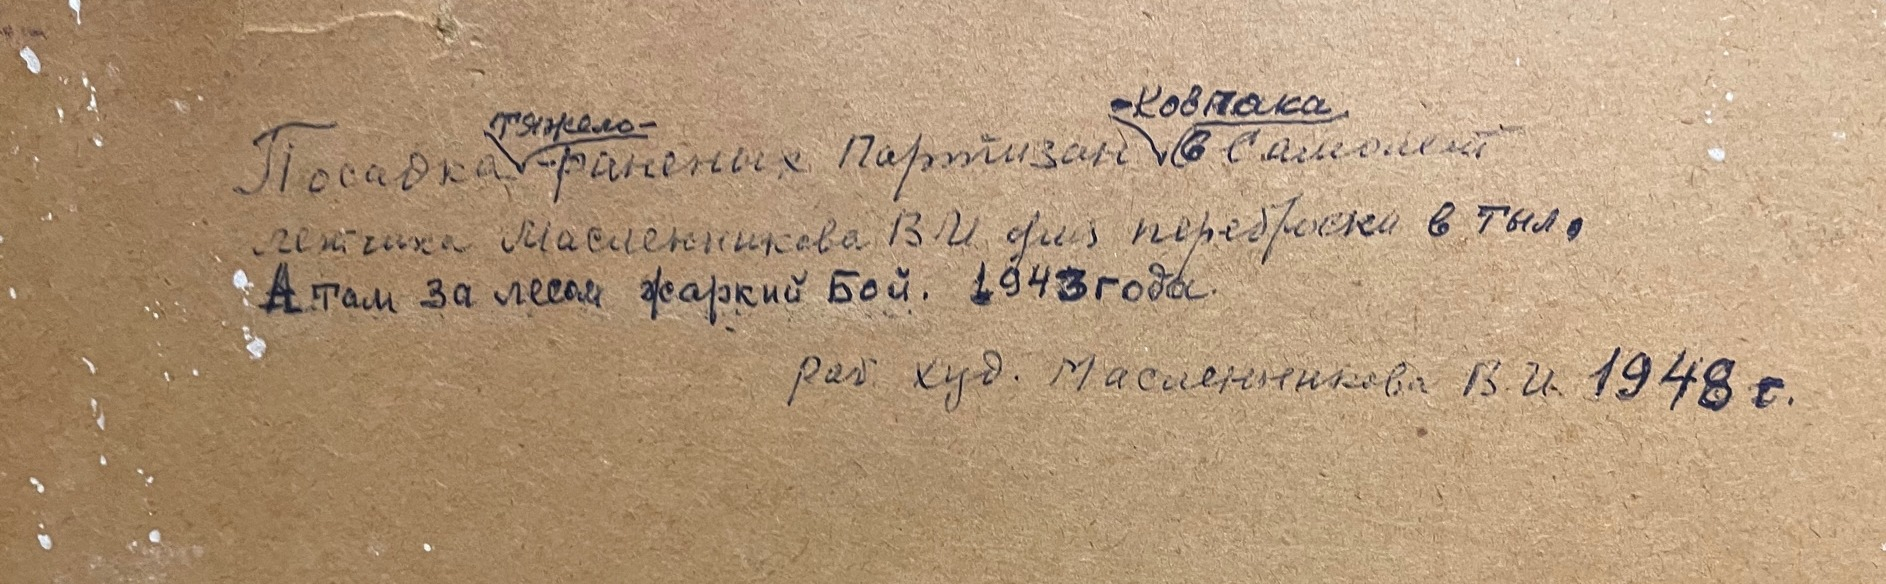 тяжело-
-Ковпака
Посадка -раненых Партизан в Самолет
летчика Масленникова В И для переброски в тыл.
А там за лесом жаркий Бой. 1943 года.
раб худ. Масленникова В. И. 1948 г.